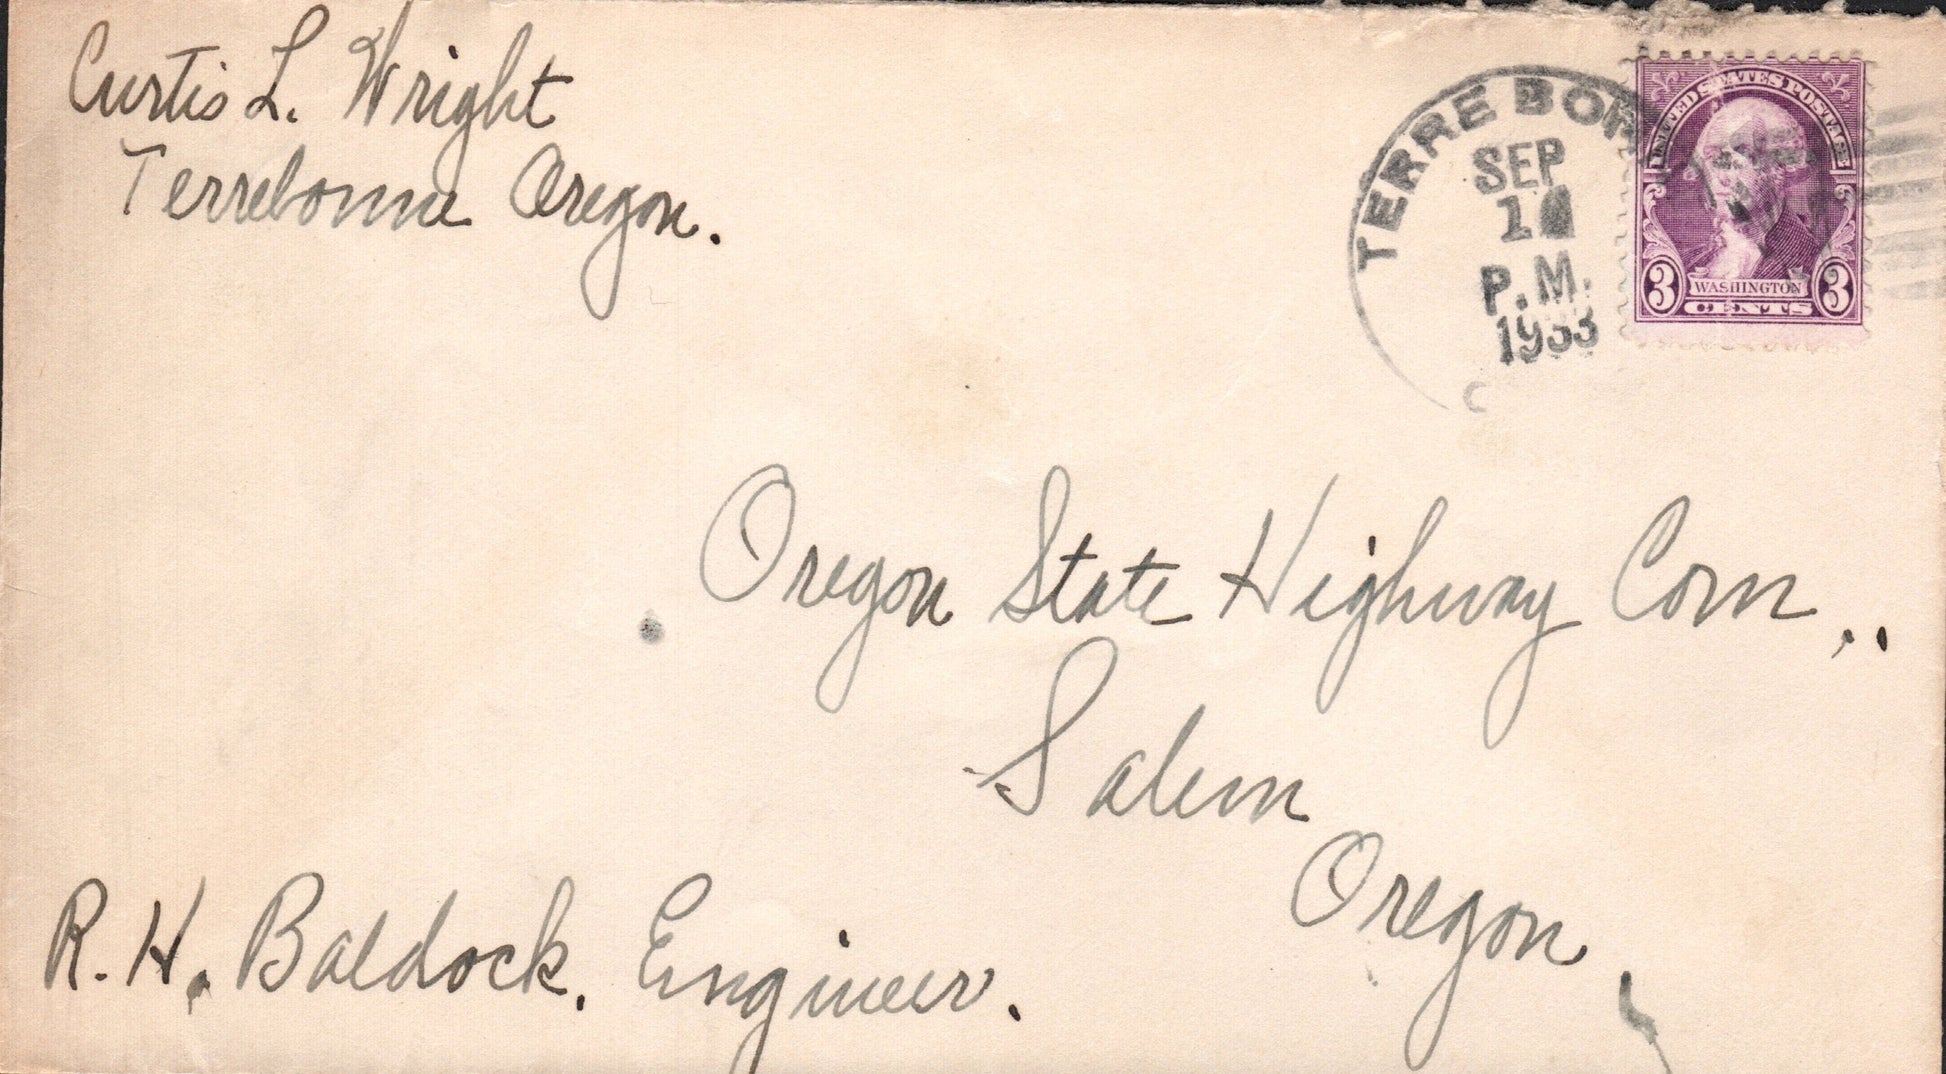 Curtis L. Wright
Terrebonne Oregon.
TERREBON
SEP
P.M.
1933
UNITED STATES POSTAGE
3 WASHINGTON 3
CENTS
Oregon State Highway Com..
Salem
Oregon,
R. H. Baldock, Engineer.